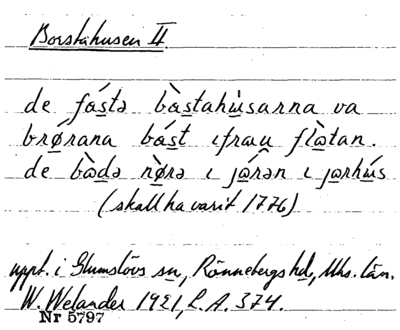 Borstahusen II
de fá̱stə bà̱stahù̱sarna va
brǿ̱rana bá̱st ıfrau flà̱tan.
de bà̱də nø̱̀rə ı já̱rən ı ja̱rhú̱s
(skall ha varit 1776)
uppt. i Glumslövs sn, Rönnebergs hd, Mhs. län.
W. Welander 1921, L.A. 374.
Nr 5797